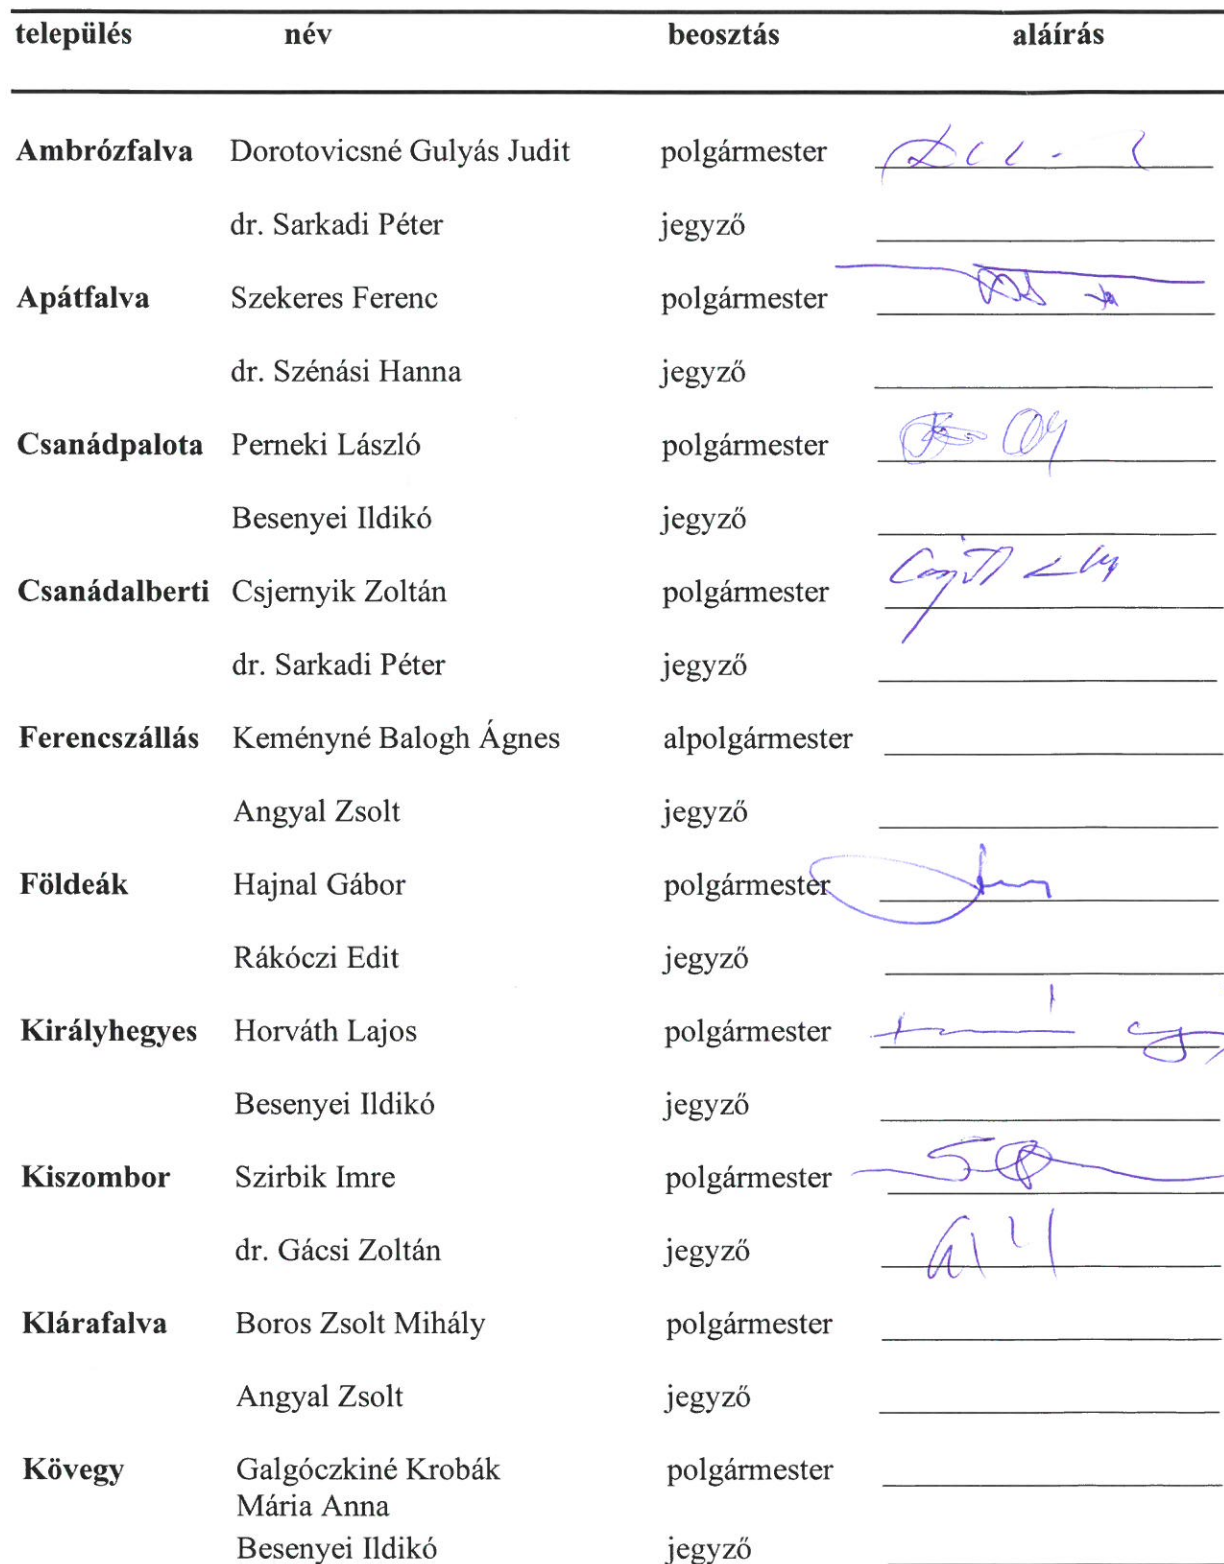 település név beosztás aláírás
Ambrózfalva Dorotovicsné Gulyás Judit polgármester
dr. Sarkadi Péter jegyző
Apátfalva Szekeres Ferenc polgármester
dr. Szénási Hanna jegyző
Csanádpalota Perneki László polgármester
Besenyei Ildikó jegyző
Csanádalberti Csjernyik Zoltán polgármester
dr. Sarkadi Péter jegyző
Ferencszállás Keményné Balogh Ágnes alpolgármester
Angyal Zsolt jegyző
Földeák Hajnal Gábor polgármester
Rákóczi Edit jegyző
Királyhegyes Horváth Lajos polgármester
Besenyei Ildikó jegyző
Kiszombor Szirbik Imre polgármester
dr. Gácsi Zoltán jegyző
Klárafalva Boros Zsolt Mihály polgármester
Angyal Zsolt jegyző
Kövegy Galgóczkiné Krobák polgármester
Mária Anna
Besenyei Ildikó jegyző